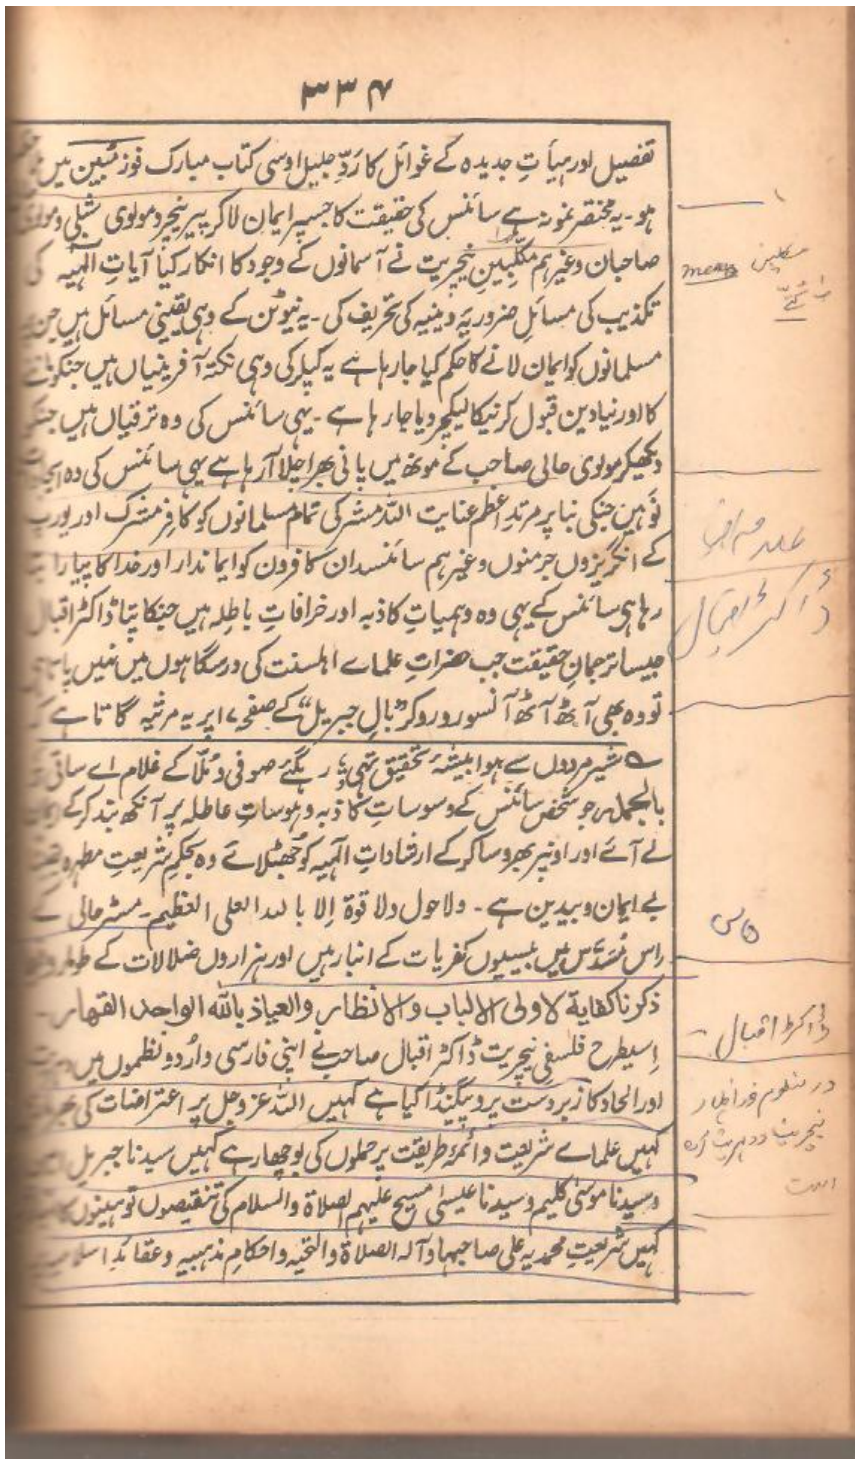 ۳۳۴
تفصیل اور ہیأتِ جدیدہ کے غوائل کا رَدِّ جلیل اوسی کتاب مبارک فوزِ مُبین میں
ہو۔ یہ مختصر نمونہ ہے سائنس کی حقیقت کا جسپر ایمان لاکر پیر نیچر و مولوی شبلی و مولوی
صاحبان وغیرہم مکلّبینِ نیچریت نے آسمانوں کے وجود کا انکار کیا آیاتِ الٰہیہ کی
تکذیب کی مسائلِ ضروریۂ دینیہ کی تحریف کی۔ یہ نیوٹن کے وہی یقینی مسائل ہیں جن پر
مسلمانوں کو ایمان لانے کا حکم کیا جارہا ہے یہ کپلر کی وہی نکتہ آفرینیاں ہیں جنکو
کا اور نیا دین قبول کرنیکا لیکچر دیا جارہا ہے۔ یہی سائنس کی وہ ترقیاں ہیں جنکو
دیکھکر مولوی حالی صاحب کے مونھ میں پانی بھرا چلا آرہا ہے یہی سائنس کی وہ
تو ہیں جنکی بنا پر مرتدِ اعظم عنایت اللہ مشرکی تمام مسلمانوں کو کافر مشرک اور یورپ
کے انگریزوں جرمنوں وغیرہم سائنسدان کافروں کو ایماندار اور خدا کا پیارا
رہا ہی سائنس کے یہی وہ وہمیاتِ کاذبہ اور خرافاتِ باطلہ ہیں جنکا پتا ڈاکٹر اقبال
جیسا ترجمانِ حقیقت جب حضراتِ علماے اہلسنت کی درسگاہوں میں نہیں پاتا
تو وہ بھی آٹھ آٹھ آنسو رو رو کر ”بالِ جبریل“ کے صفحہ ۱۷ پر یہ مرثیہ گاتا ہے
شیر مردوں سے ہوا بیشۂ تحقیق تہی ؛ رہگئے صوفی و ملّا کے غلام اے ساقی
بالجملہ جو شخص سائنس کے وسوساتِ کاذبہ و ہوساتِ عاطلہ پر آنکھ بند کرکے ایمان
لے آئے اور اونپر بھروسا کرکے ارشاداتِ الٰہیہ کو جُھٹلائے وہ بحکمِ شریعتِ مطہرہ
بے ایمان و بیدین ہے۔ ولا حول ولا قوة الا باللہ العلی العظیم۔ مسٹر حالی کے
اس مُسَدَّس میں بیسیوں کفریات کے انبار ہیں اور ہزاروں ضلالات کے طومار
ذکرنا کفایة لاولی الالباب والانظار والعیاذ باللہ الواحد القہار۔
اسیطرح فلسفیِ نیچریت ڈاکٹر اقبال صاحب نے اپنی فارسی و اُردو نظموں میں دہریت
اور الحاد کا زبردست پروپیگنڈا کیا ہے کہیں اللہ عزوجل پر اعتراضات کی
کہیں علماے شریعت و ائمۂ طریقت پر حملوں کی بوچھار ہے کہیں سیدنا جبریل
و سیدنا موسیٰ کلیم و سیدنا عیسیٰ مسیح علیہم الصلاة والسلام کی تنقیصوں توہینوں کا
کہیں شریعتِ محمدیہ علی صاحبہا وآلہ الصلاة والتحیہ و احکامِ مذہبیہ و عقائدِ اسلامیہ
meany
ڈاکٹر اقبال
ڈاکٹر اقبال